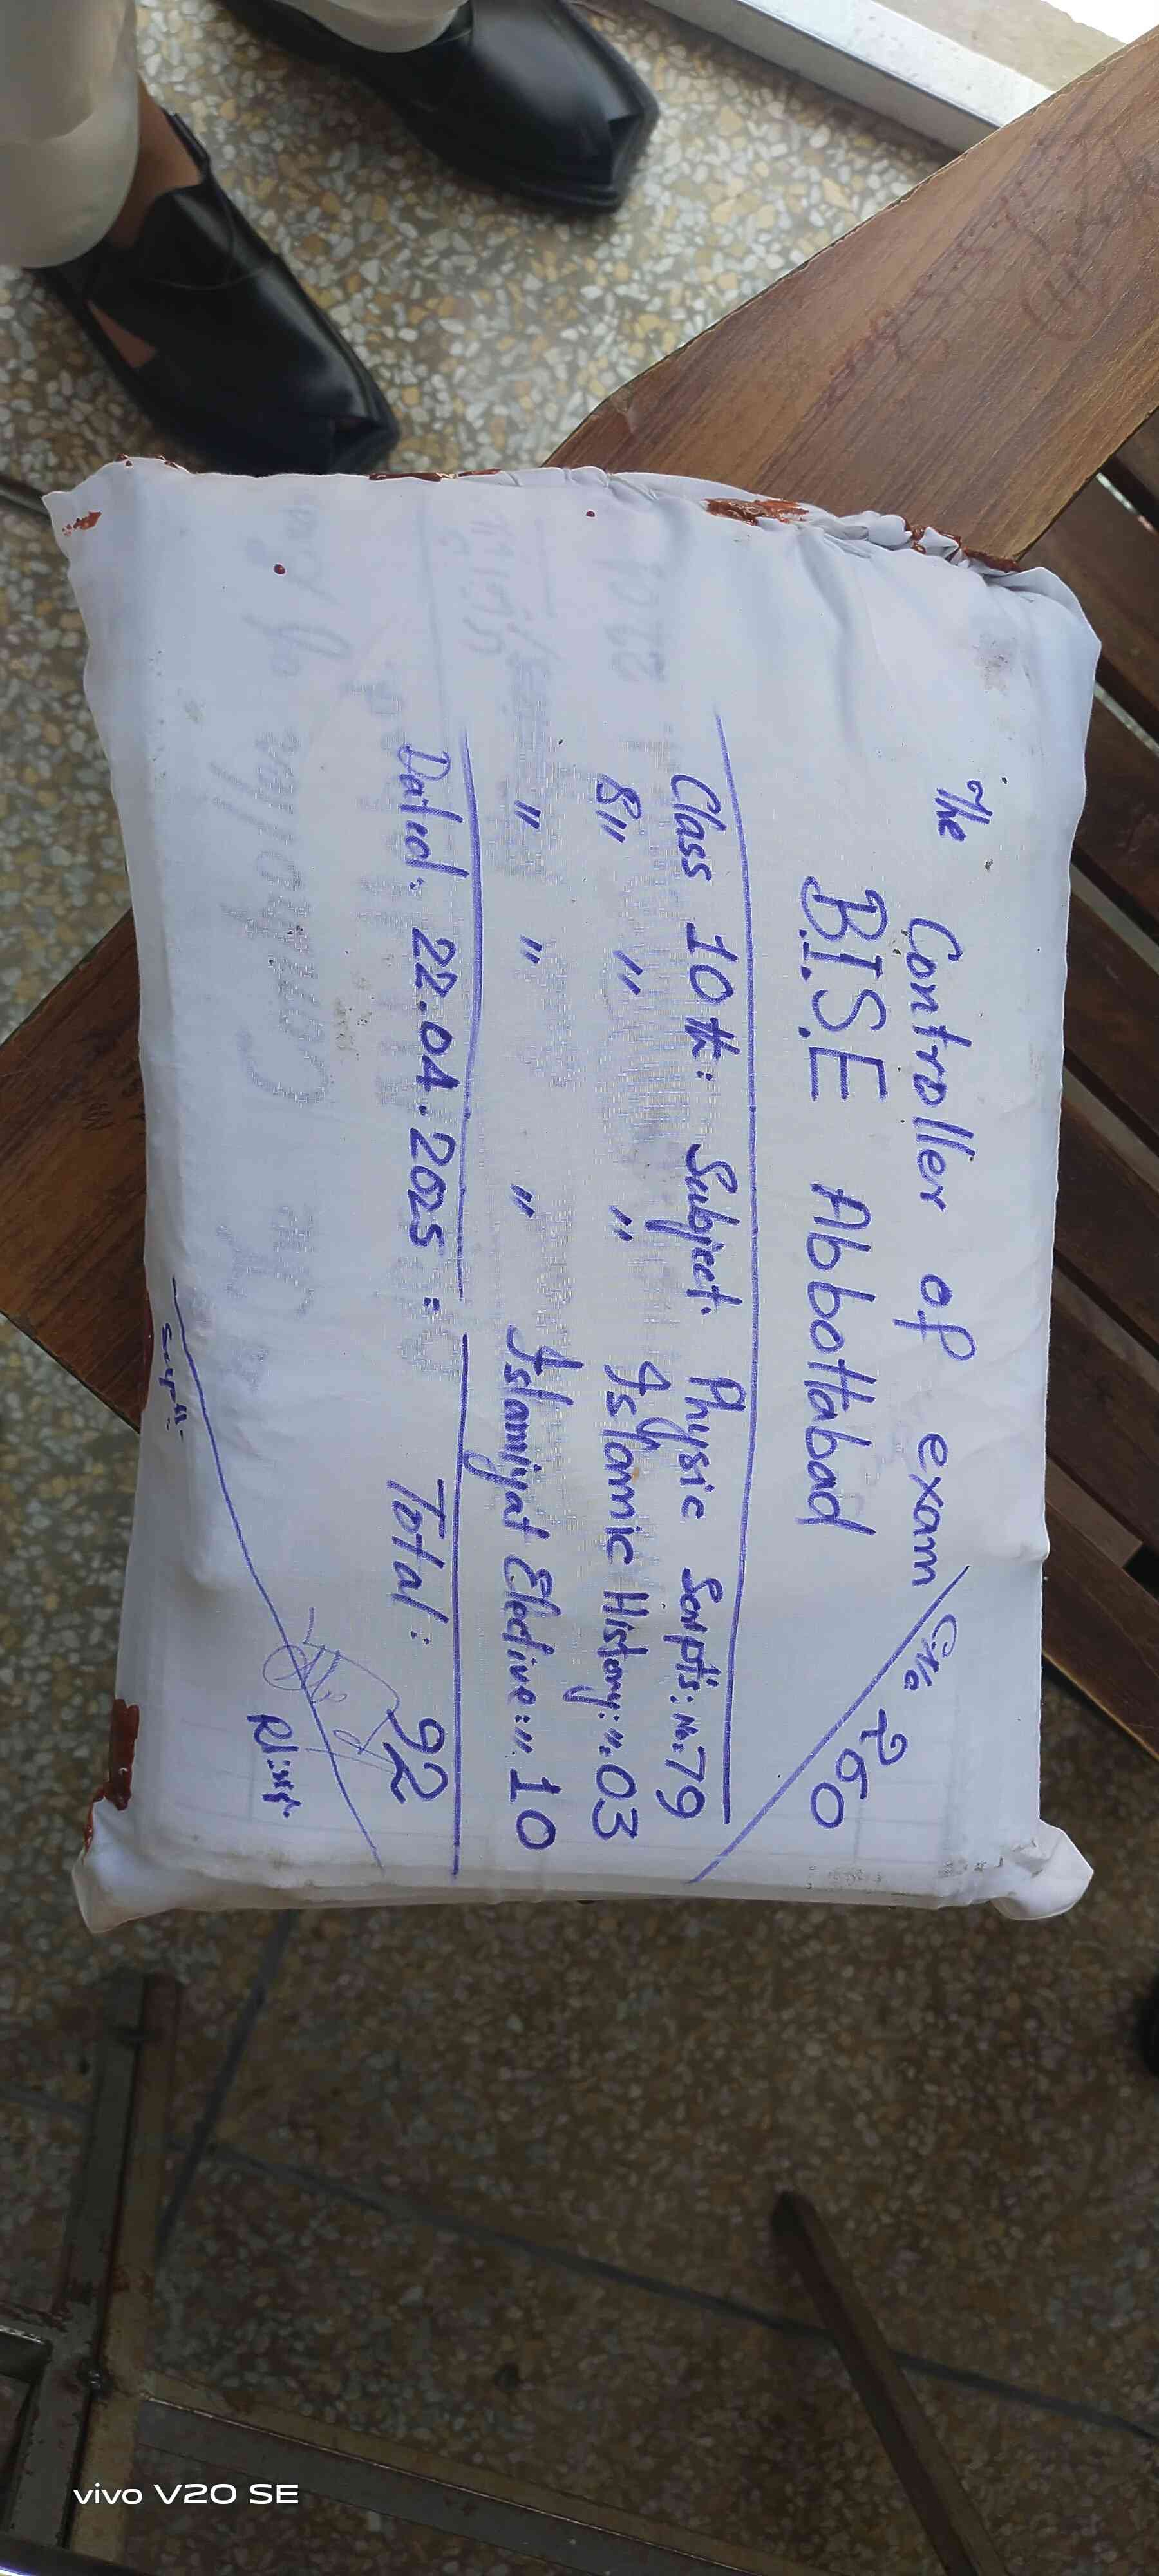 The Controller of exam
C.No 260
B.I.S.E Abbottabad
Class 10th: Subject. Physic Script's: No: 79
8 " " " Islamic History: ". 03
" " " Islamiyat Elective: ". 10
Dated: 22.04.2025: Total: 92
vivo V20 SE